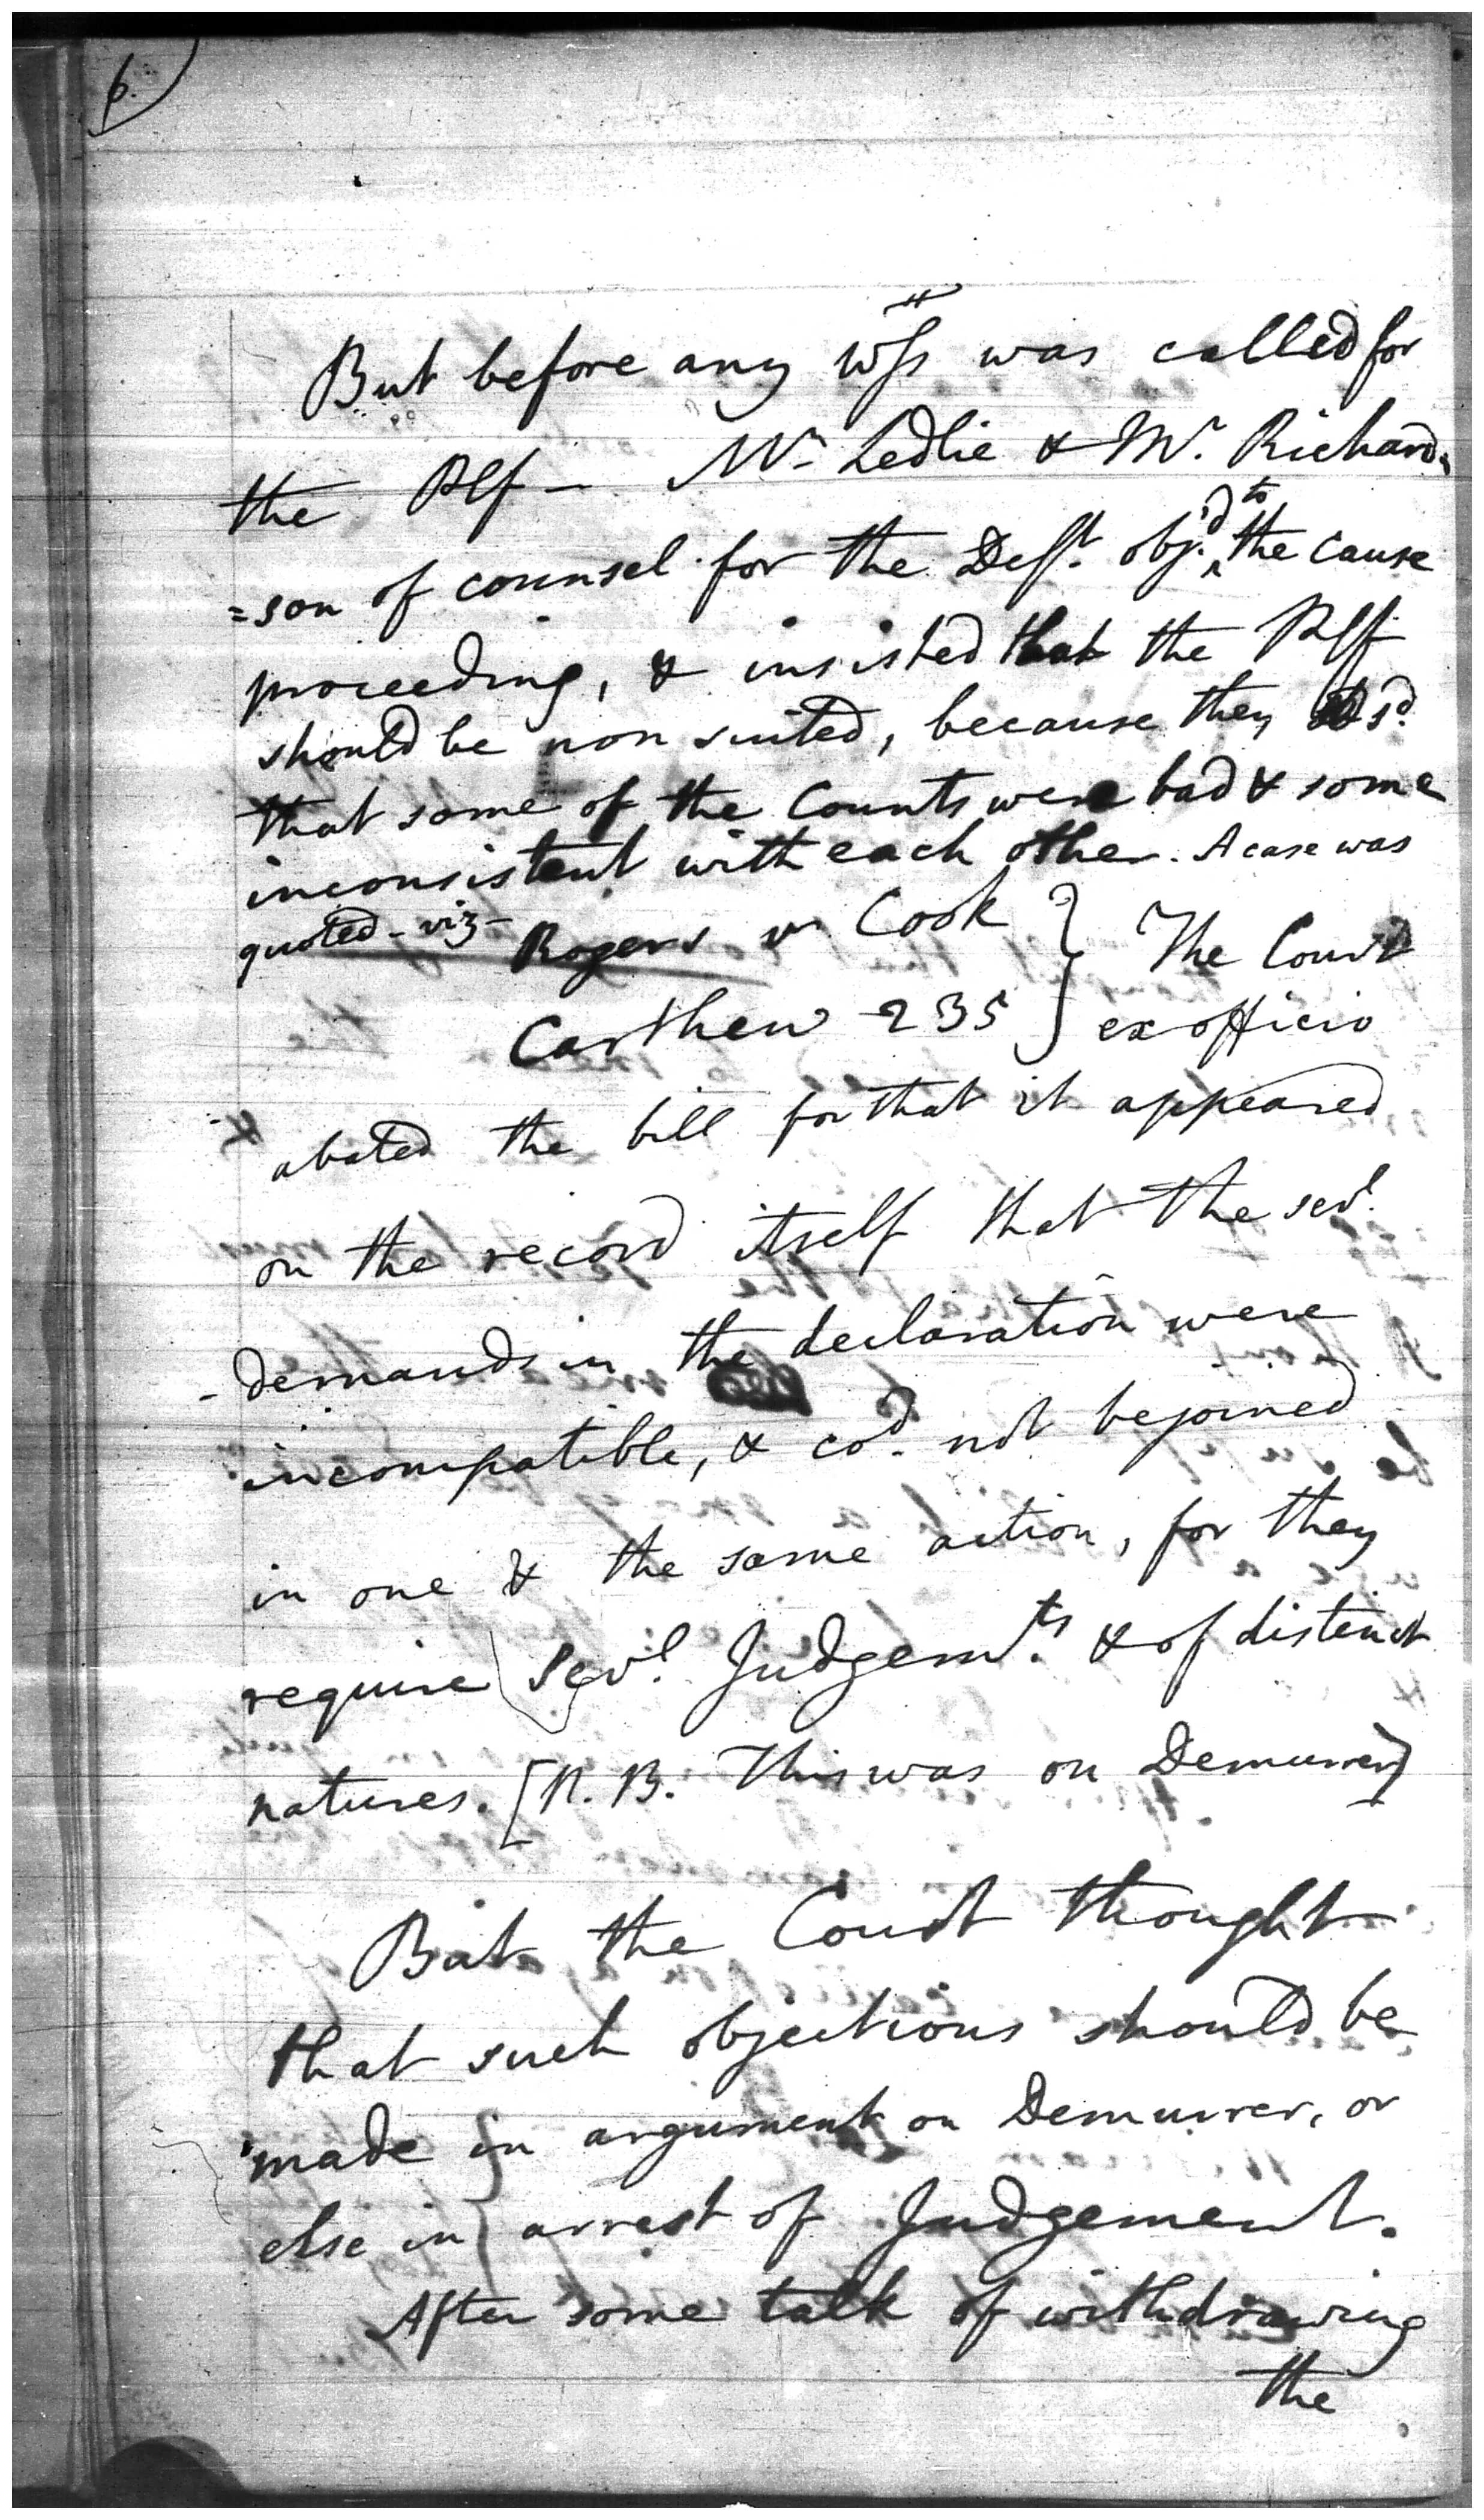 6.
But before any Wss was called for
the Plf - Mr Ledlie & Mr. Richard
=son of counsel for the Deft. objd. to the cause
proceeding, & insisted that the Plff
should be non suited, because they sd.
that some of the Counts were bad & some
inconsistent with each other. A case was
quoted - viz - Rogers vs Cook } The Court
Carthew 235 } ex officio
abated the bill for that it appeared
on the record itself that the sevl.
demands in the declaration were
incompatible, & cod. not be joined
in one & the same action, for they
require sevl. Judgemts. & of distinct
natures. [N.B. This was on Demurrer]
But the Court thought
that such objections should be
made in argument on Demurrer, or
else in arrest of Judgement.
After some talk of withdrawing
the